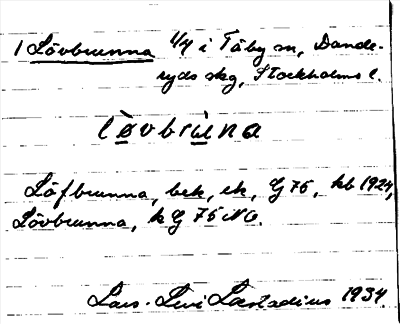 1 Lövbrunna 1/4 i Täby sn, Dande-
ryds skg, Stockholms l.
lòvbrùna
Löfbrunna, bek, ek, G 75, kb 1924,
Lövbrunna, k G 75 NO.
Lars-Levi Læstadius 1934.